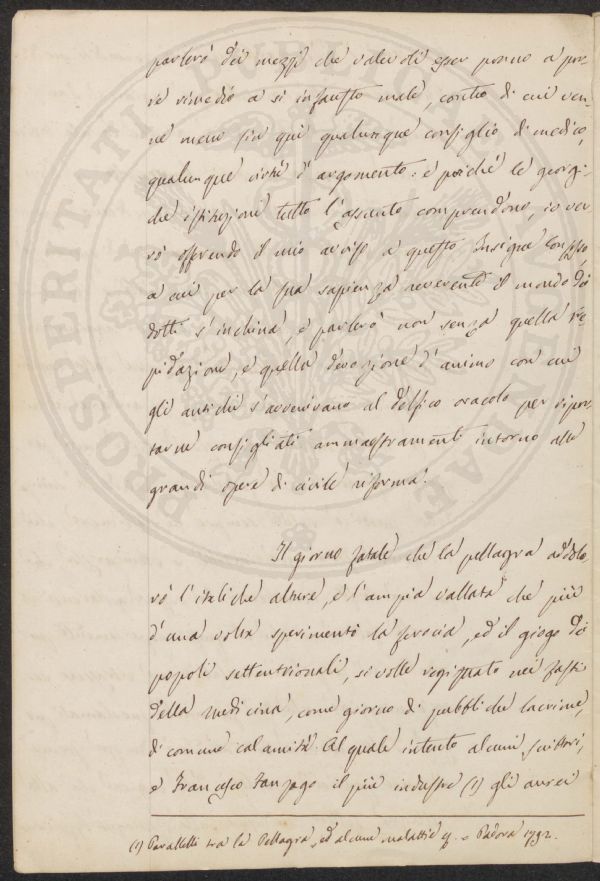 parlerò dei mezzi che valevoli esser ponno a por-
re rimedio a sì infausto male, contro di cui ven-
ne meno fin quì qualunque consiglio di medico,
qualunque virtù d'argomento: e poichè le georgi-
che istituzioni tutto l'assunto comprendono, io ver-
rò offerendo il mio avviso a questo Insigne Consesso
a cui per la sua sapienza reverente il mondo dei
dotti s'inchina, e parlerò non senza quella tre-
pidazione, e quella devozione d'animo con cui
gli antichi s'avvenivano al Delfico oracolo per ripor-
tarne consigliati ammaestramenti intorno alle
grandi opere di civile riforma.
Il giorno fatale che la pellagra addolo-
rò l'italiche alture, e l'ampia vallata che più
d'una volta sperimentò la ferocia, ed il giogo dei
popoli settentrionali, si volle registrato nei fasti
della medicina, come giorno di pubbliche lacrime,
di comune calamità. Al quale intento alcuni scrittori,
e Francesco Fanzago il più industre (1) gli aurei
(1) Paralleli tra la Pellagra, ed alcune malattie ec. = Padova 1792.
PROSPERITATI PUBLICAE